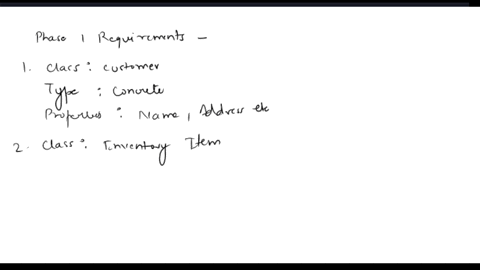 Phase 1 Requirements -
1. Class: customer
Type : Concrete
Properties : Name, Address etc
2. Class: Inventory Item